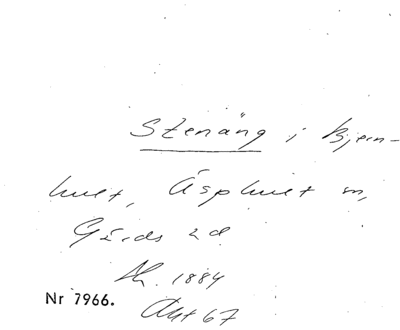 Stenäng i Bjern-
hult, Äsphult sn,
Gärds hd
Ak. 1884
Nr 7966.
Akt 67